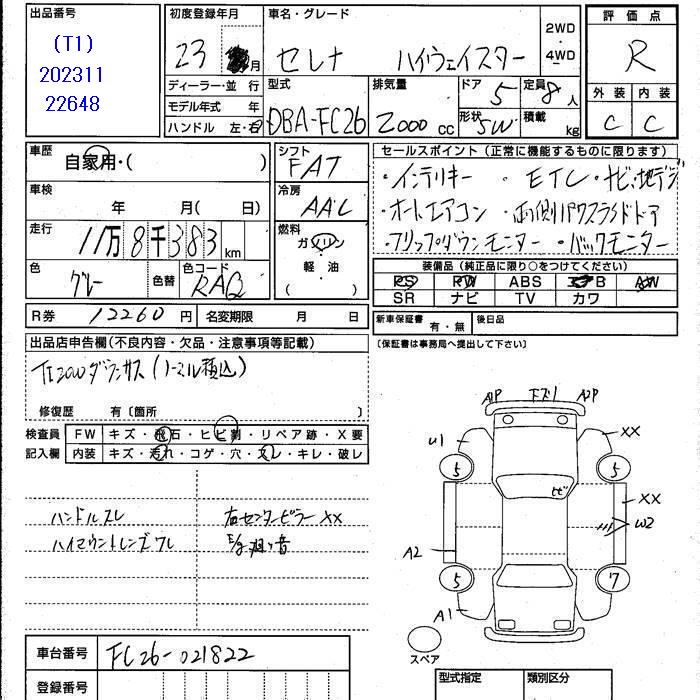 出品番号
(T1)
202311
22648
初度登録年月 車名・グレード
23 月 セレナ ハイウェイスター
2WD
・
4WD
評価点
R
外装 内装
C C
ディーラー・並行
モデル年式 年
ハンドル 左・右
型式
DBA-FC26
排気量
2000 cc
ドア 5
形状 SW
定員 8 人
積載 kg
車歴
自家用・( )
車検
年 月( 日)
走行
11万8千383 km
色
グレー
色替
色コード
RAQ
シフト
FAT
冷房
AAC
燃料
ガソリン
軽・油
( )
セールスポイント(正常に機能するものに限ります)
・インテリキー ・ETC・ナビ・地デジ
・オートエアコン ・両側パワースライドドア
・フリップダウンモニター ・バックモニター
装備品(純正品に限り○をつけてください)
PS PW ABS B AW
SR ナビ TV カワ
R券 12260 円 名変期限 月 日
新車保証書 有・無 後日品
〔保証書は事務局へ提出して下さい〕
出品店申告欄(不良内容・欠品・注意事項等記載)
ダウンサス(ノーマル積込)
修復歴 有〔箇所 〕
検査員 FW キズ・飛石・ヒビ割・リペア跡・X要
記入欄 内装 キズ・汚れ・コゲ・穴・スレ・キレ・破レ
ハンドルスレ
ハイマウントレンズワレ
右センターピラー XX
E/g 廻り音
A1P 下ズ1 A2P
U1 XX
5 5
ヒビ
XX
W2
A2
5 7
A1
スペア
車台番号 FC26-021822
登録番号
型式指定 類別区分